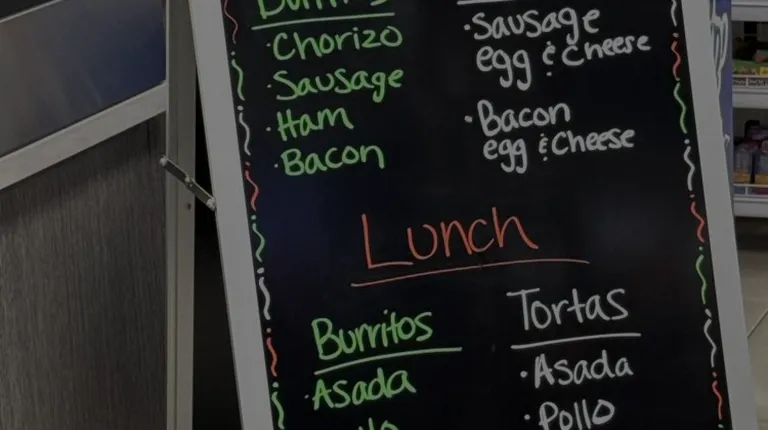 Burritos
·Chorizo
·Sausage
·Ham
·Bacon
·Sausage
egg & Cheese
·Bacon
egg & Cheese
Lunch
Burritos
·Asada
Tortas
·Asada
·Pollo